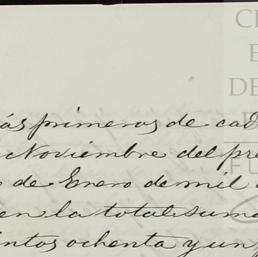 ás primeros de cad
Noviembre del pre
de Enero de mil
en la total suma
intos ochenta y un